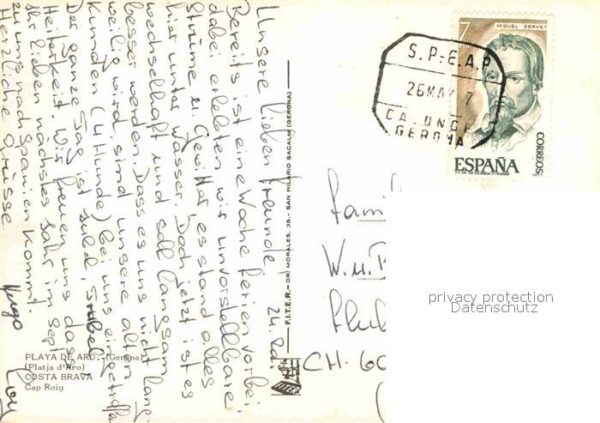 24.
Unsere lieben Freunde,
Bereits ist eine Woche Ferien vorbei
dabei erlebten wir unvorstellbare
Stürme u. Gewitter, es stand alles
hier unter Wasser. Doch jetzt ist es
wechselhaft und soll langsam
besser werden. Dass es uns nicht lang-
weilig wird, sind unsere alten
Kunden (4 Hunde) bei uns eingetroffen
Der ganze Tag ist Jubel, Trubel,
Heiterkeit. Wir freuen uns dass
Ihr lieben nächstes Jahr im Sept.
zu uns nach Spanien kommt.
Herzliche Grüsse
Hugo
PLAYA DE ARO. (Gerona)
(Platja d'Aro)
COSTA BRAVA
Cap Roig
F.I.T.E.R. - DR. MORALES, 36. - SAN HILARIO SACALM (GERONA)
S.P.E.A.P
26 MAY 7
CALONGE
GERONA
7
MIGUEL SERVET
CORREOS
ESPAÑA
Fami
W. u.
CH-60
privacy protection
Datenschutz